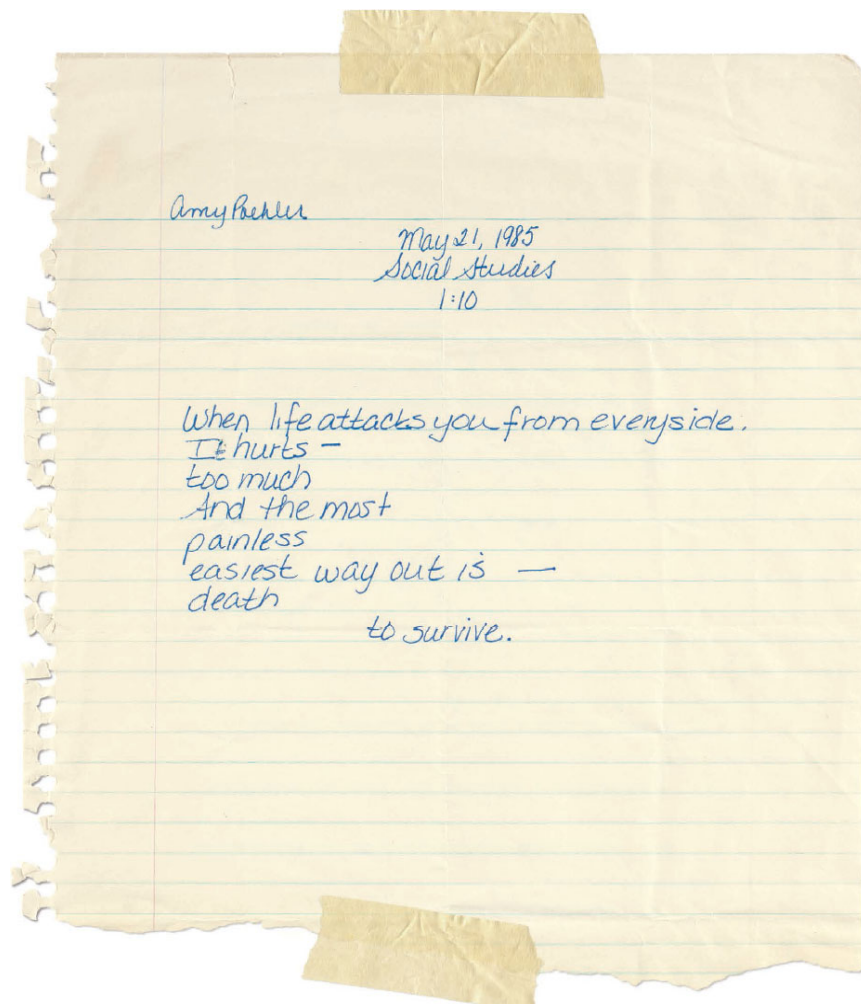 Amy Poehler
May 21, 1985
Social Studies
1:10
When life attacks you from everyside.
It hurts –
too much
And the most
painless
easiest way out is —
death
to survive.